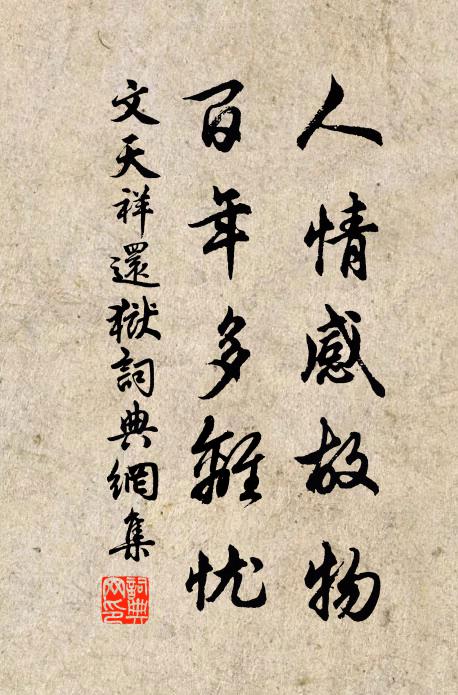 人情感故物
百年多離忧
文天祥還獄詞典網集
詞典网印